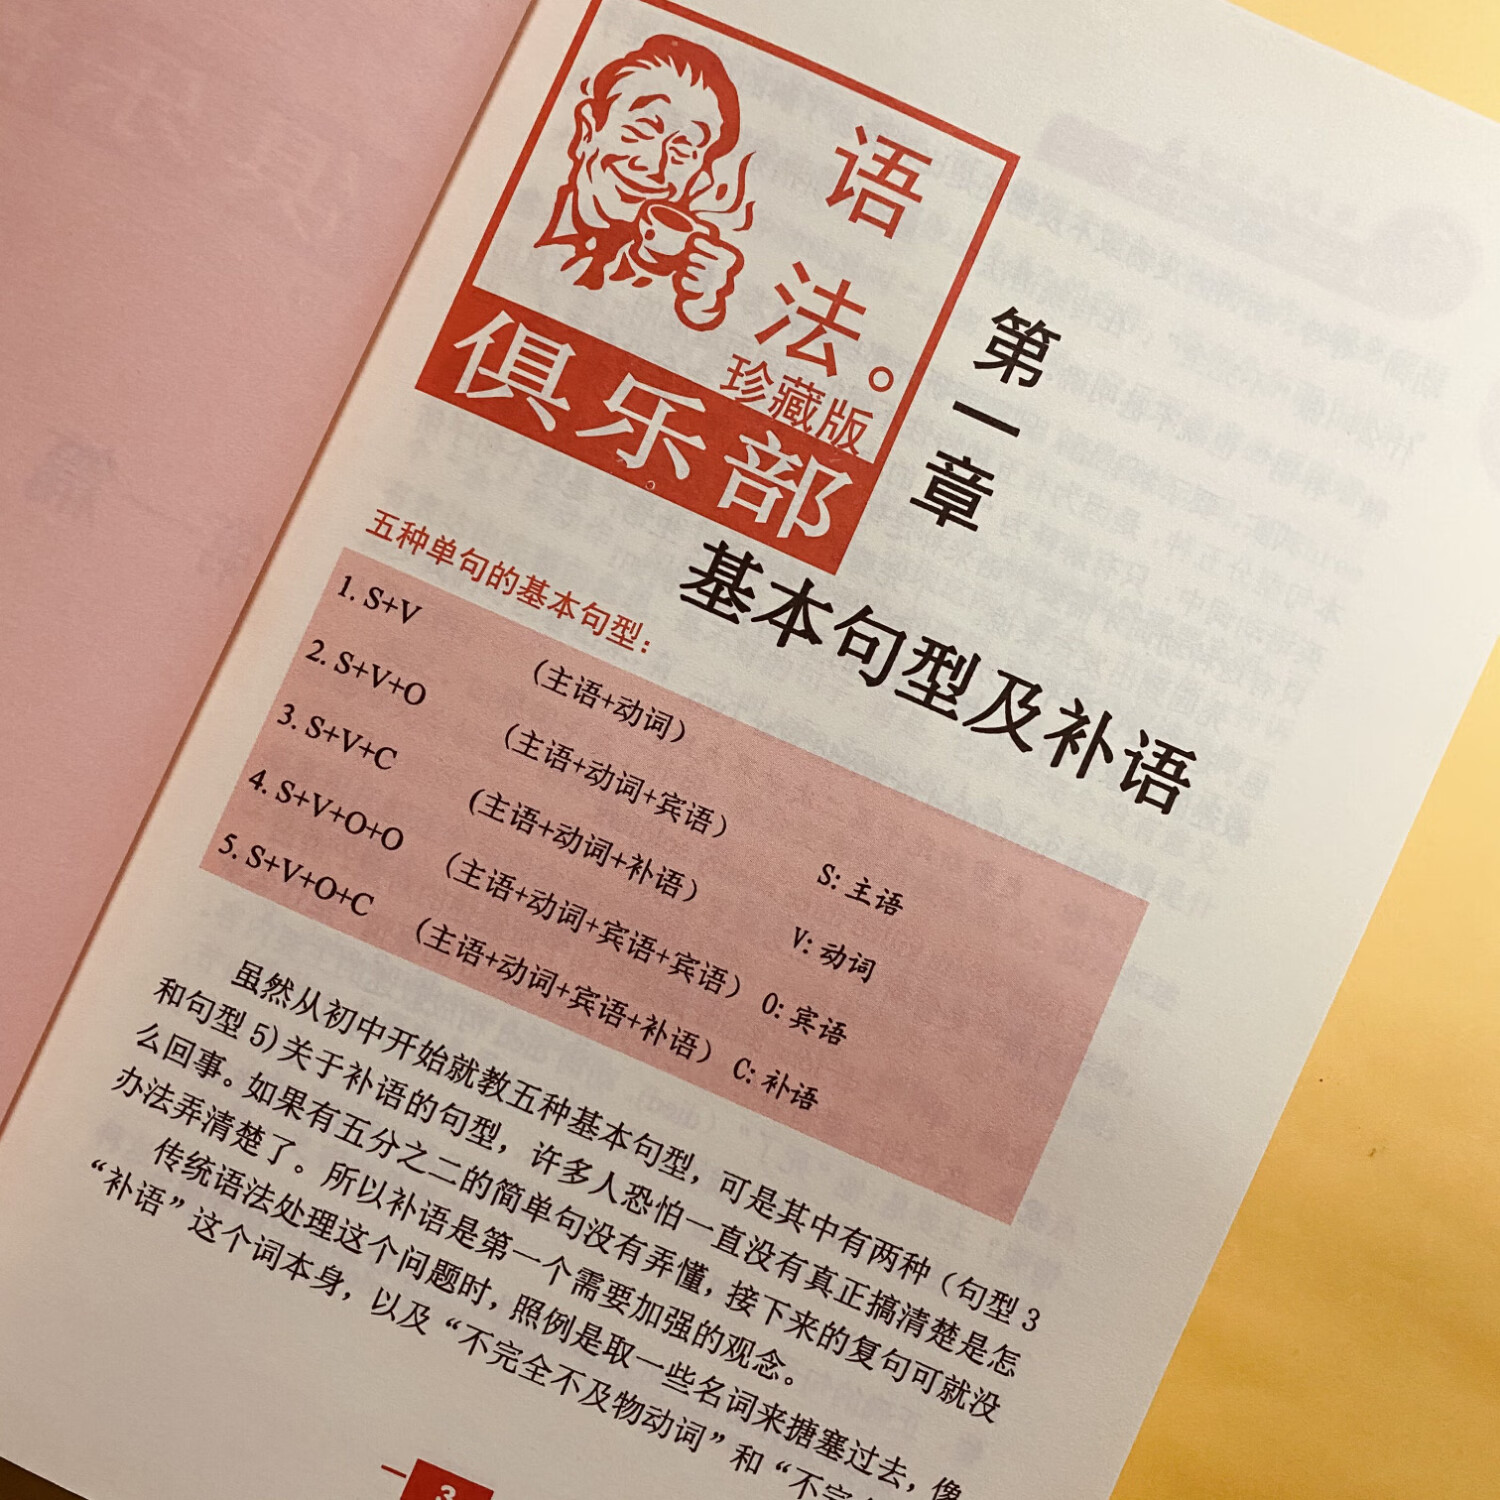 语法。
珍藏版
俱乐部
第一章
基本句型及补语
五种单句的基本句型：
1. S+V （主语+动词）
2. S+V+O （主语+动词+宾语）
3. S+V+C （主语+动词+补语）
4. S+V+O+O （主语+动词+宾语+宾语）
5. S+V+O+C （主语+动词+宾语+补语）
S: 主语
V: 动词
O: 宾语
C: 补语
虽然从初中开始就教五种基本句型，可是其中有两种（句型 3
和句型 5)关于补语的句型，许多人恐怕一直没有真正搞清楚是怎
么回事。如果有五分之二的简单句没有弄懂，接下来的复句可就没
办法弄清楚了。所以补语是第一个需要加强的观念。
传统语法处理这个问题时，照例是取一些名词来搪塞过去，像
“补语”这个词本身，以及“不完全不及物动词”和“不完
3